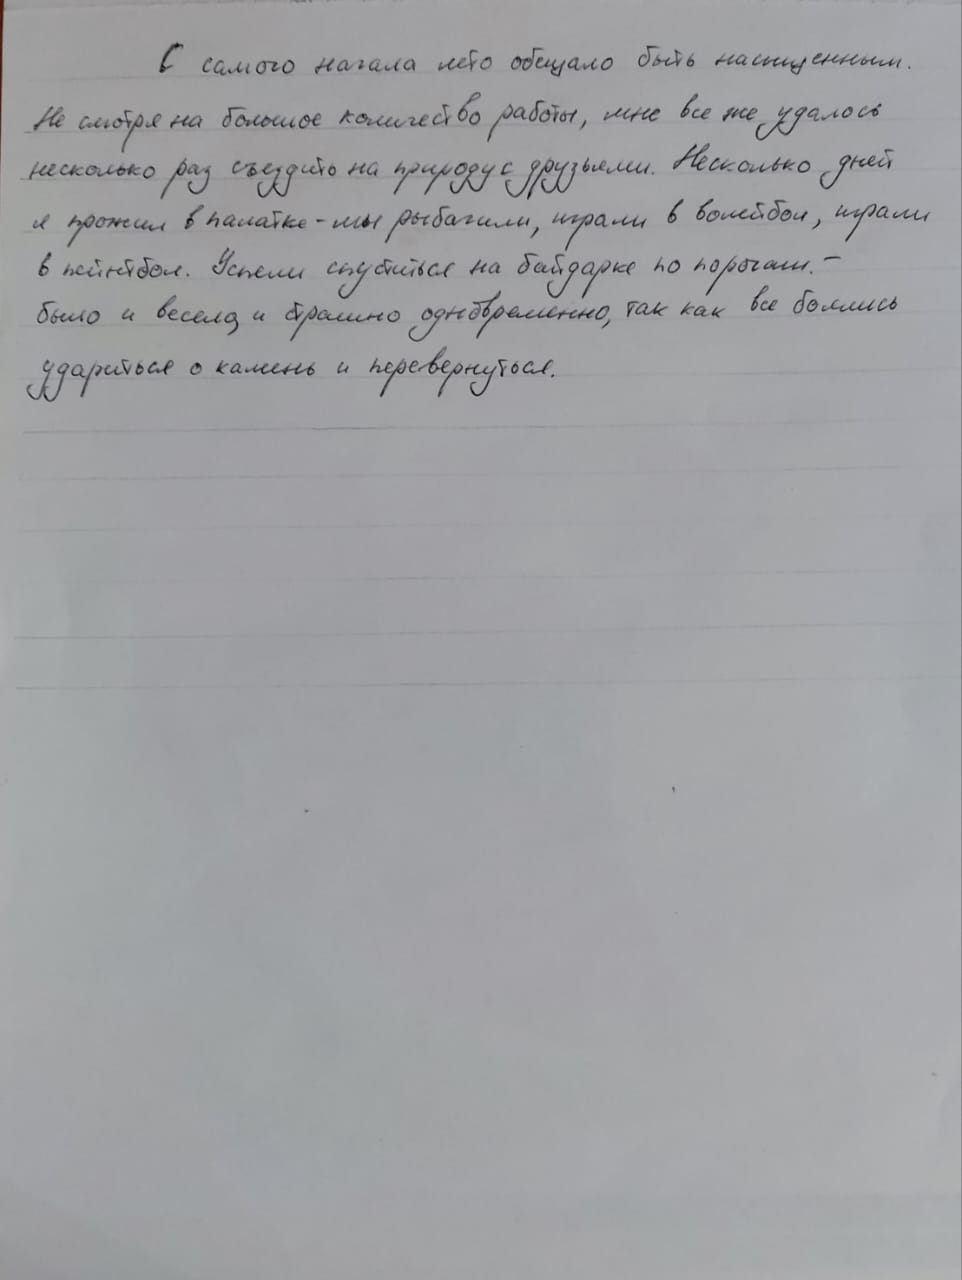 С самого начала лето обещало быть насыщенным.
Не смотря на большое количество работы, мне все же удалось
несколько раз съездить на природу с друзьями. Несколько дней
я прожил в палатке - мы рыбачили, играли в волейбол, играли
в пейнтбол. Успели спуститься на байдарке по порогам. -
было и весело, и страшно одновременно, так как все боялись
удариться о камень и перевернуться.